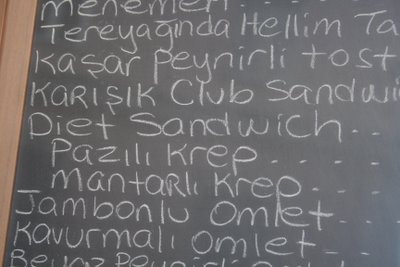 menemen . . . .
Tereyağında Hellim Ta
Kaşar Peynirli tost
KARIŞIK Club Sandwi
Diet Sandwich . . .
Pazılı Krep . . . .
Mantarlı Krep . . .
Jambonlu Omlet . . .
Kavurmalı Omlet . . .
Beyaz Peynirli